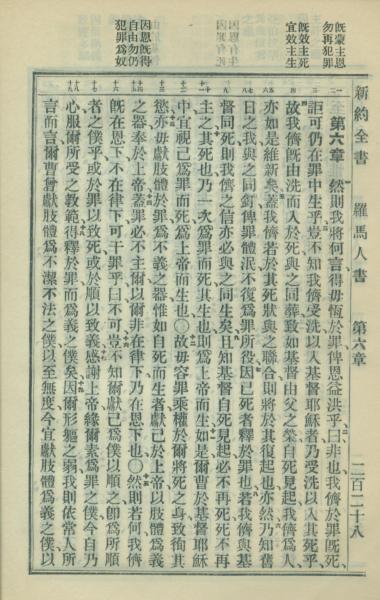 既蒙主恩
勿再犯罪
既效主死
宜效主生
因恩既得
自由勿仍
犯罪為奴
新約全書
羅馬人書
第六章
二百二十八
第六章 然則我將何言得毋恆於罪俾恩益洪乎曰非也我儕於罪既死
詎可仍在罪中生乎豈不知我儕受洗以入基督耶穌者乃受洗以入其死乎
故我儕既由洗而入於死與之同葬致如基督由父之榮自死見起我儕為人
亦如是維新矣蓋我儕若於其死狀與之聯合則將於其復起也亦然乃知舊
日之我與之同釘俾罪體泯不復為罪所役因已死者釋於罪也若我儕與基
督同死則我儕之信亦必與之同生矣且知基督自死見起必不再死死不再
主之其死也乃一次為罪而死其生也則為上帝而生如是爾曹於基督耶穌
中宜視己為罪而死為上帝而生也〇故毋容罪乘權於爾將死之身致徇其
慾亦毋獻肢體於罪為不義之器惟如自死而生者獻己於上帝以肢體為義
之器奉於上帝蓋罪必不主爾以爾非在律下乃在恩下也〇然則若何我儕
既在恩下不在律下可干罪乎曰不可豈不知爾獻己為僕以順之卽為所順
者之僕乎或於罪以致死或於順以致義感謝上帝緣爾素為罪之僕今自乃
心服爾所受之教範得釋於罪而為義之僕矣因爾形軀之弱我則依常人所
言而言爾曹曾獻肢體為不潔不法之僕以至無度今宜獻肢體為義之僕以